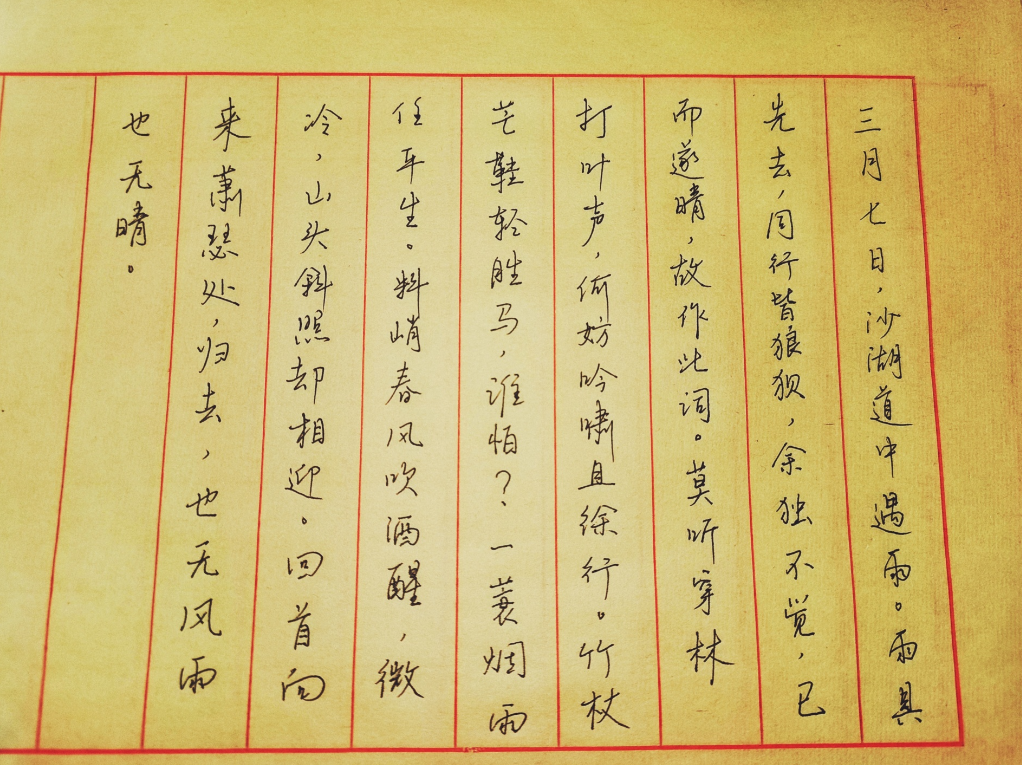 三月七日，沙湖道中遇雨。雨具
先去，同行皆狼狈，余独不觉，已
而遂晴，故作此词。莫听穿林
打叶声，何妨吟啸且徐行。竹杖
芒鞋轻胜马，谁怕？一蓑烟雨
任平生。料峭春风吹酒醒，微
冷，山头斜照却相迎。回首向
来萧瑟处，归去，也无风雨
也无晴。